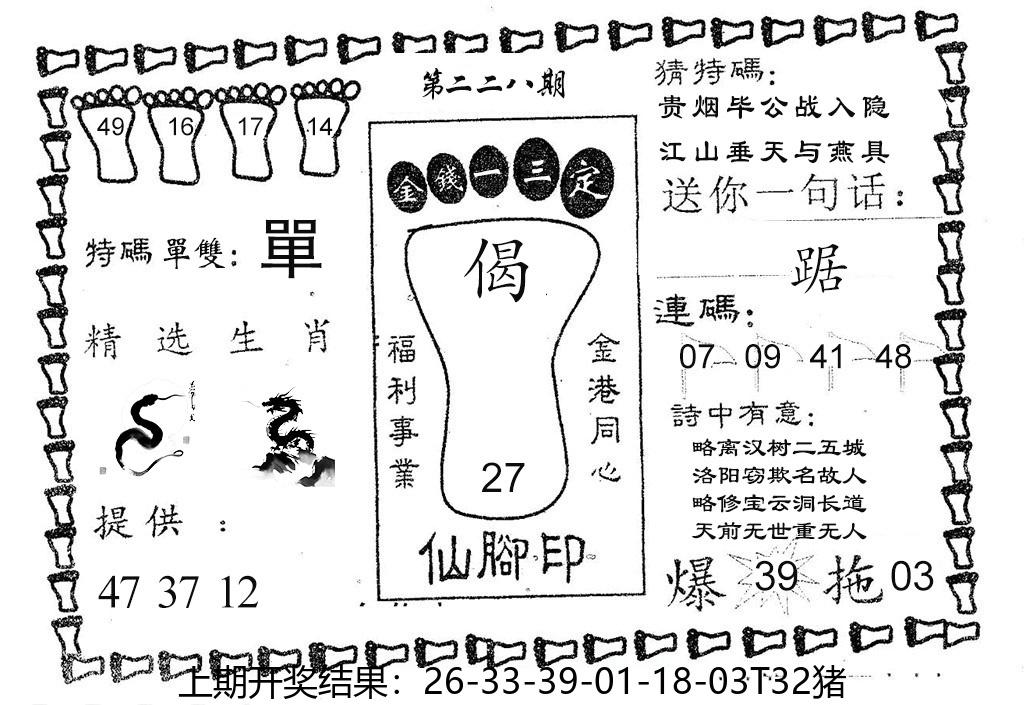 第二二八期
49 16 17 14
特碼單雙：單
精选生肖
提供：
47 37 12
金錢一三定
偈
福利事業
金港同心
27
仙腳印
猜特碼：
贵烟毕公战入隐
江山垂天与燕具
送你一句话：
踞
連碼：
07 09 41 48
詩中有意：
略离汉树二五城
洛阳窃欺名故人
略修宝云洞长道
天前无世重无人
爆 39 拖 03
上期开奖结果：26-33-39-01-18-03T32猪